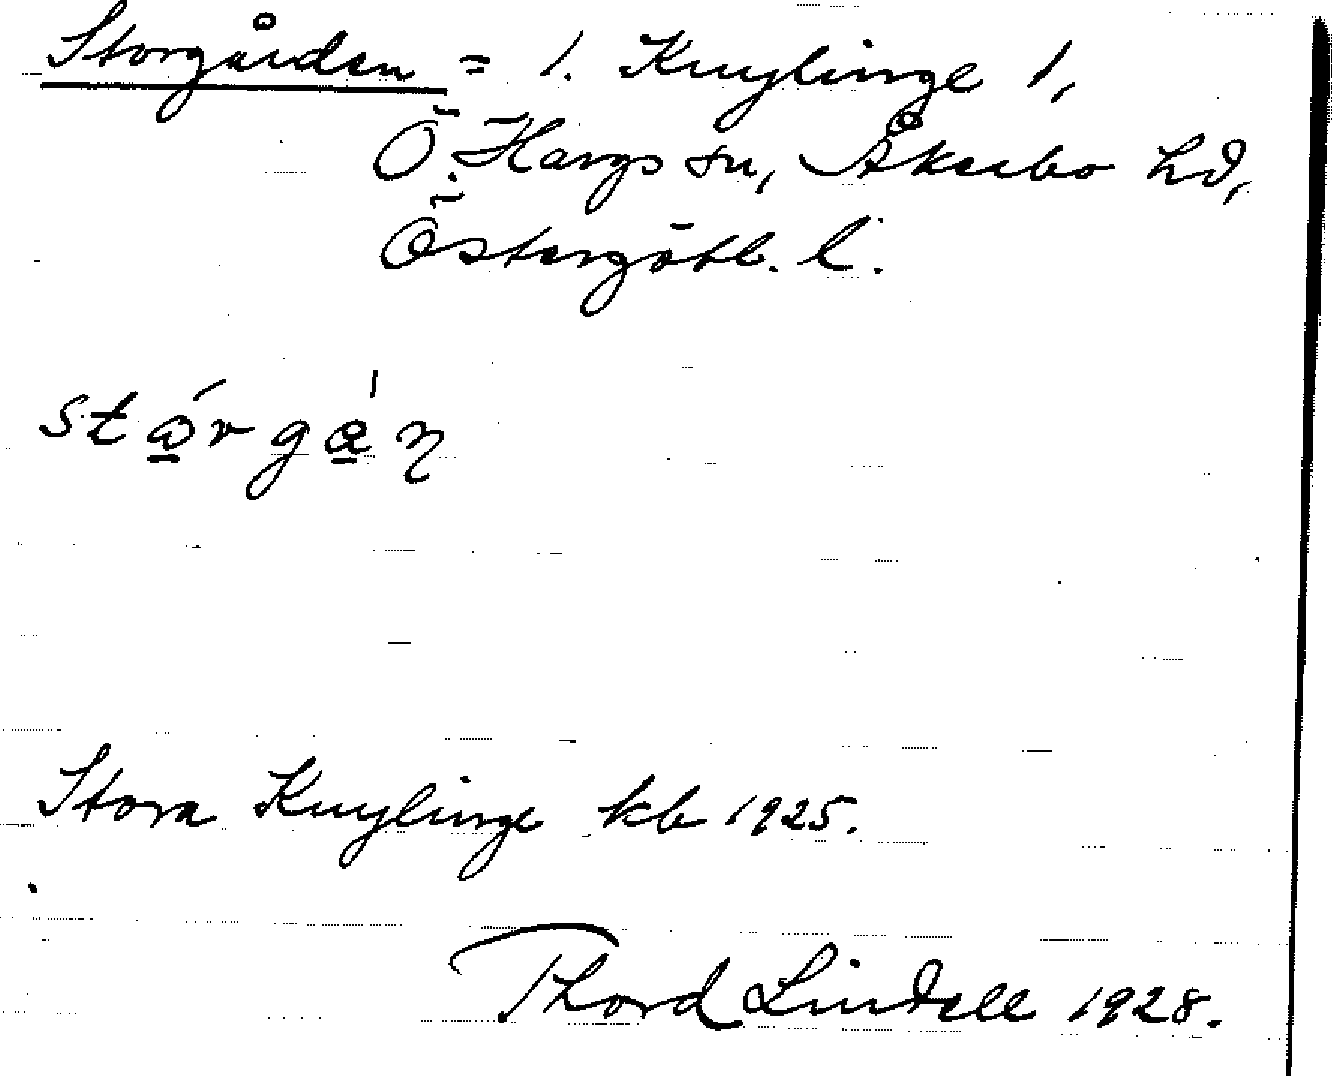 Storgården = 1. Knylinge 1,
Ö. Hargs sn, Åkerbo hd,
Östergötl. l.
Stora Knylinge kb 1925.
Thord Lindell 1928.